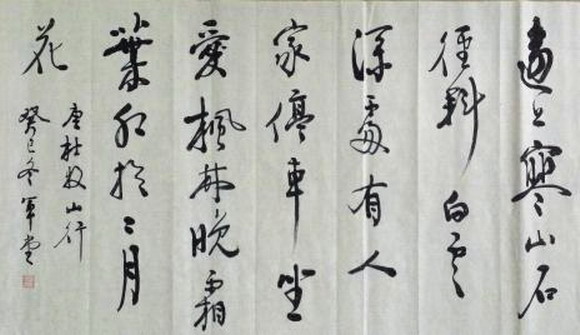 遠上寒山石
徑斜白雲
深處有人
家停車坐
愛楓林晚霜
葉紅於二月
花
唐杜牧山行
癸巳冬軍